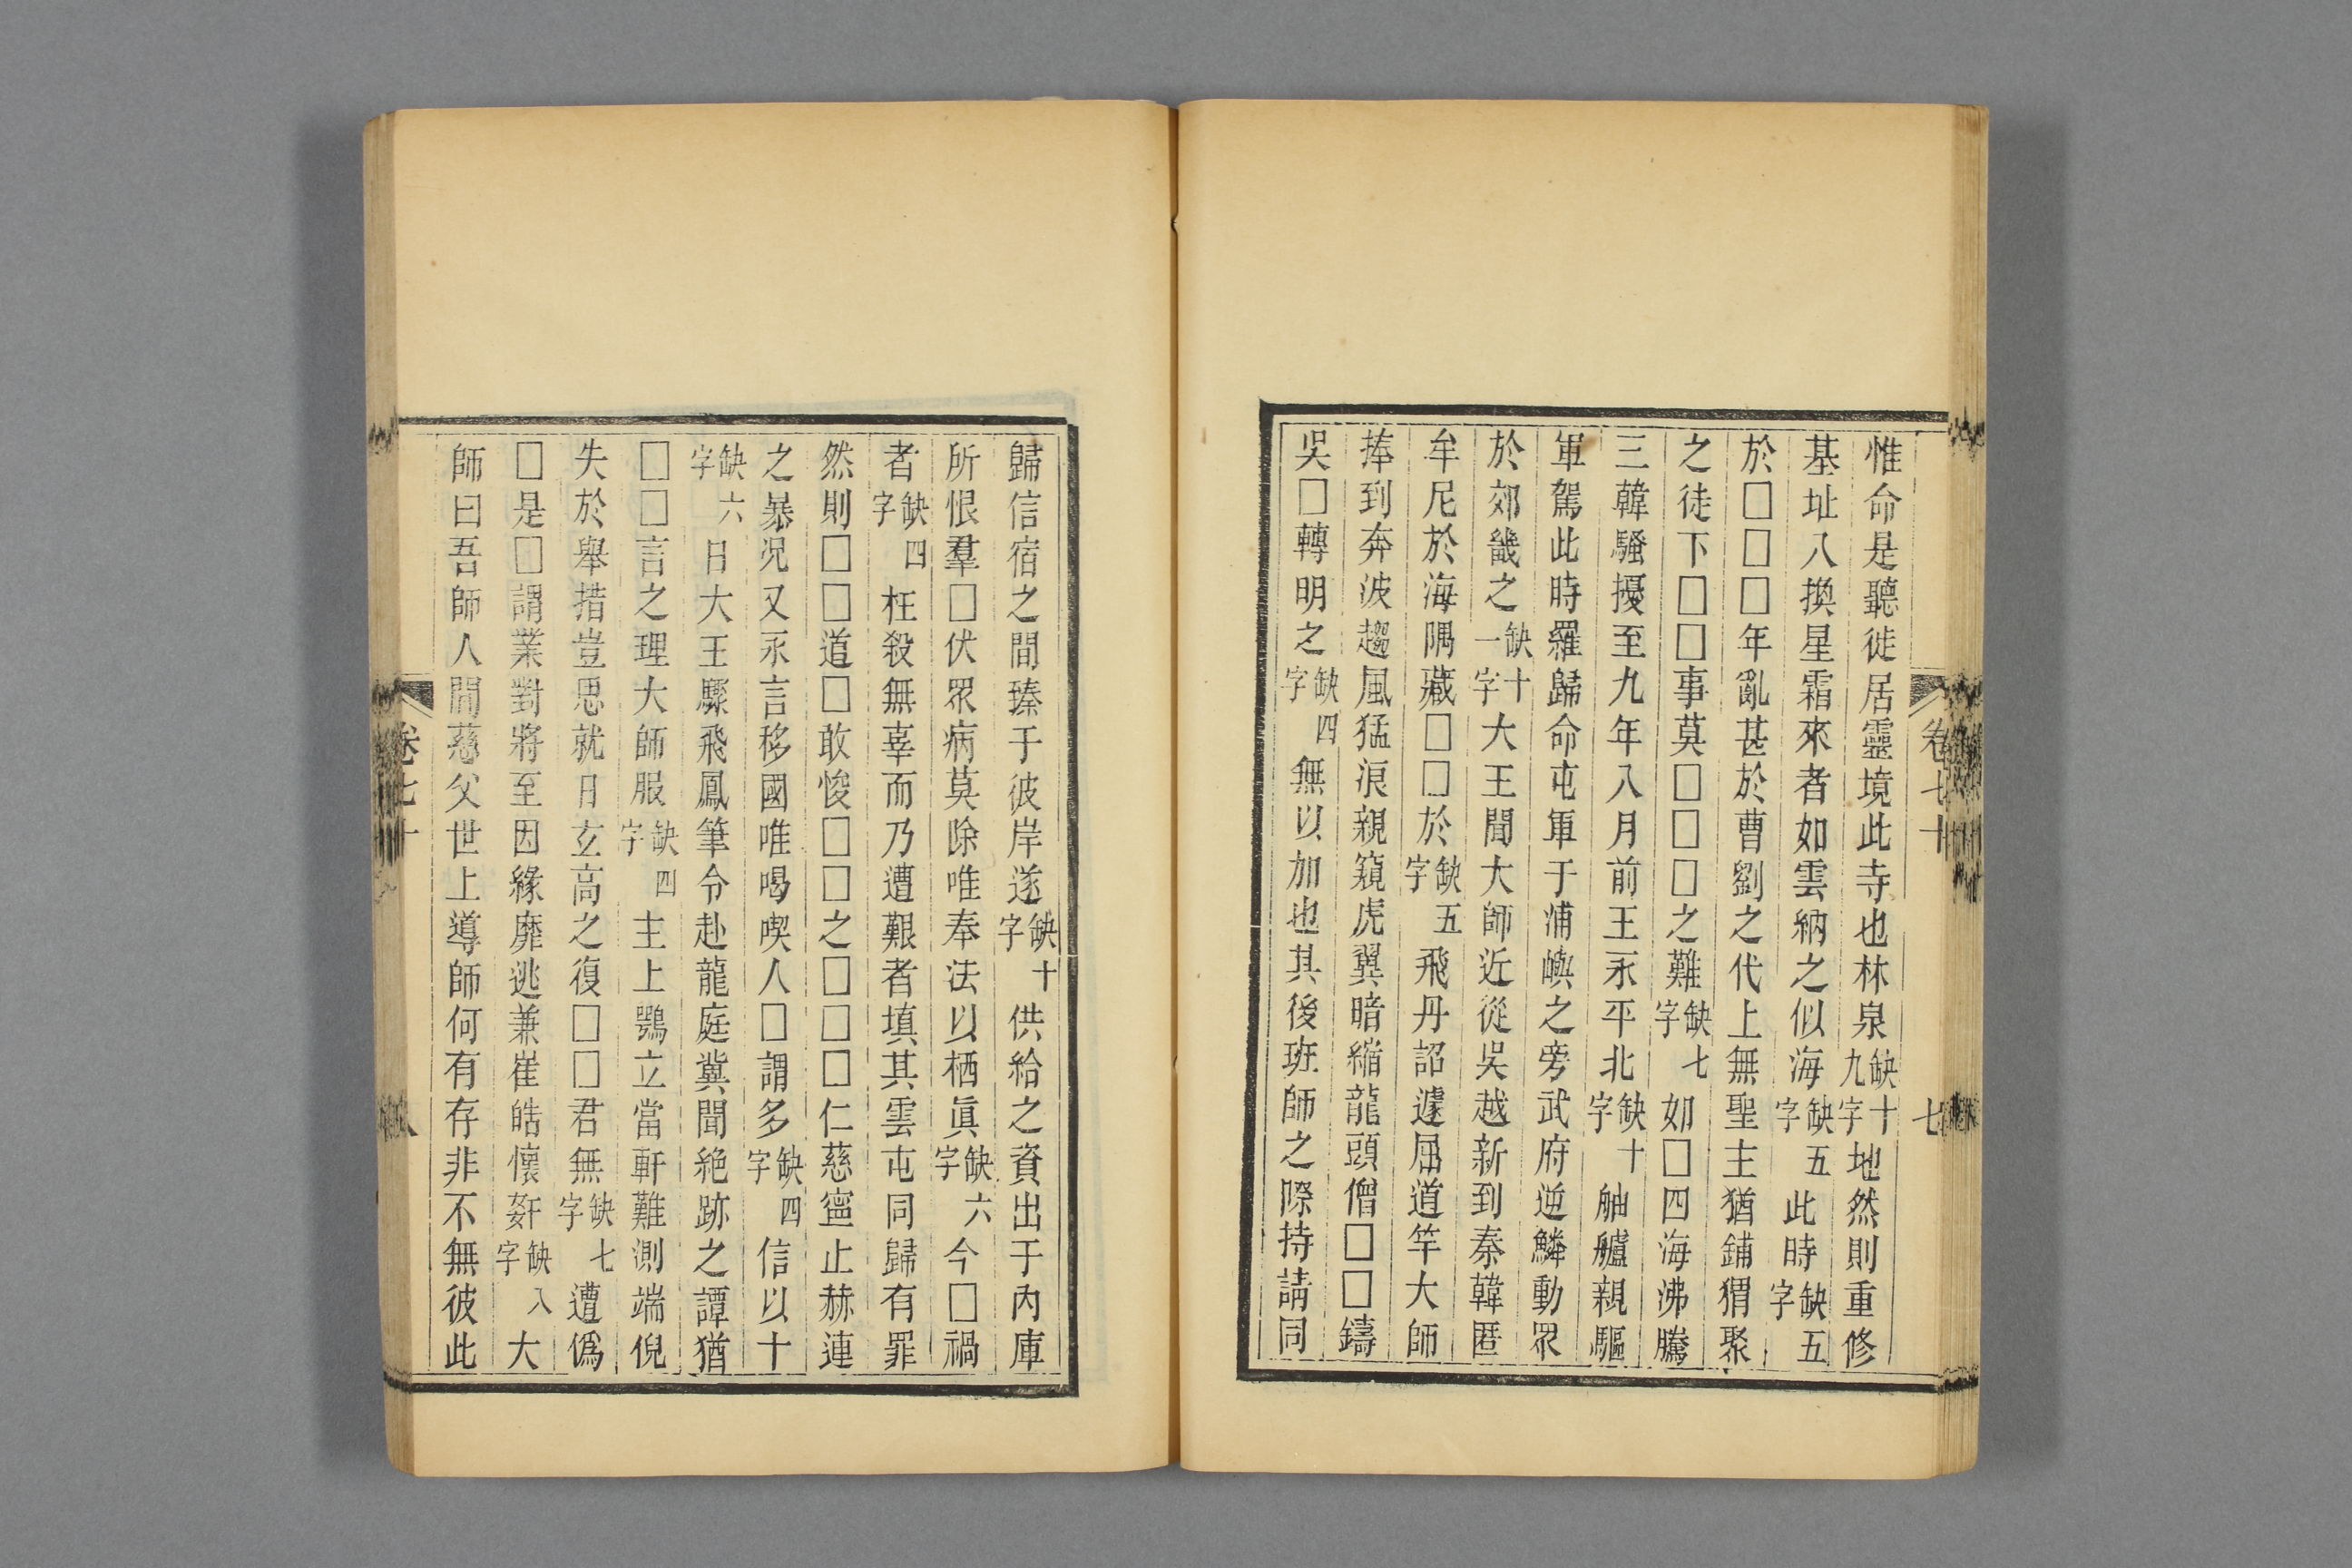 卷七十 七
惟命是聽徙居靈境此寺也林泉缺十九字地然則重修
基址八換星霜來者如雲納之似海缺五字此時缺五字
於□□□年亂甚於曹劉之代上無聖主猶鋪猬聚
之徒下□□事莫□□□之難缺七字如□四海沸騰
三韓騷擾至九年八月前王永平北缺十字舳艫親驅
軍駕此時羅歸命屯軍于浦嶼之旁武府逆鱗動眾
於郊畿之缺十一字大王聞大師近從吳越新到秦韓匿
牟尼於海隅藏□□於缺五字飛丹詔遽屈道竿大師
捧到奔波趨風猛浪親窺虎翼暗縮龍頭僧□□鑄
吳□轉明之缺四字無以加也其後班師之際持請同
歸信宿之間臻于彼岸遂缺十字供給之資出于內庫
所恨羣□伏眾病莫除唯奉法以栖眞缺六字今□禍
者缺四字枉殺無辜而乃遭艱者填其雲屯同歸有罪
然則□□道□敢悛□□之□□□仁慈寍止赫連
之暴況又永言移國唯喝喫人□謂多缺四字信以十
缺六字日大王驟飛鳳筆令赴龍庭冀聞絶跡之譚猶
□□言之理大師服缺四字主上鶚立當軒難測端倪
失於舉措豈思就日玄高之復□□君無缺七字遭僞
□是□謂業對將至因緣靡逃兼崔皓懷姧缺八字大
師曰吾師人間慈父世上導師何有存非不無彼此
卷七十 八